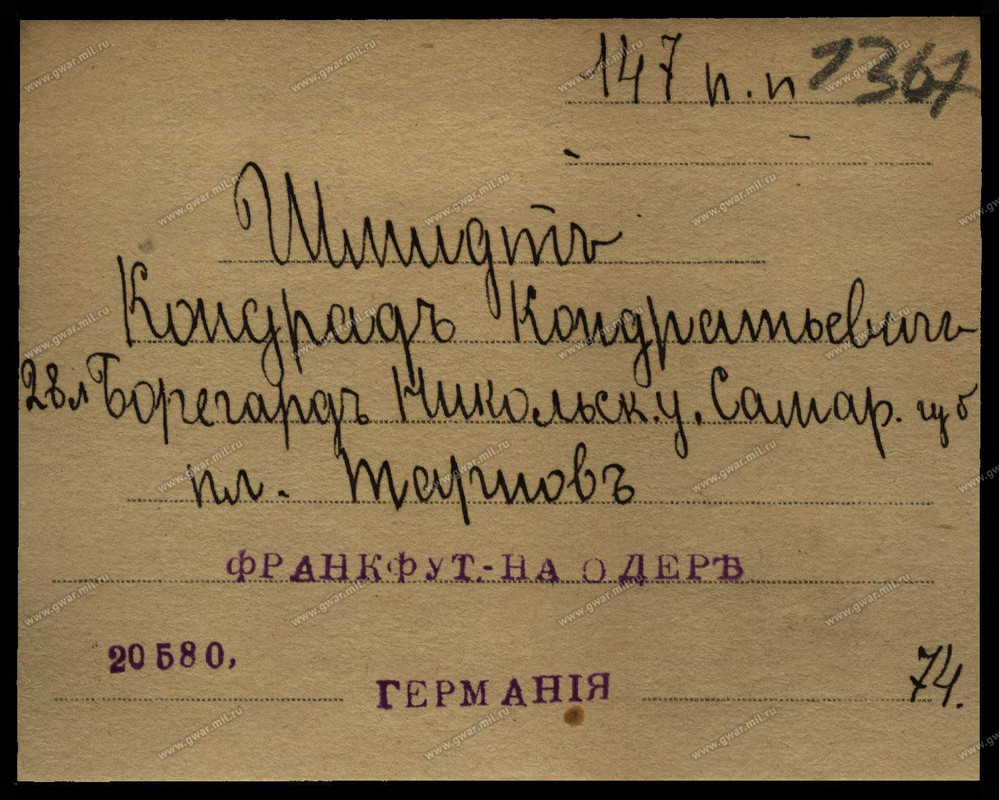 147 п.п 7367
Шмидтъ
Кондрадъ Кондратьевич
28 л Борегардъ Никольск.у. Самар. губ
пл. Тарновъ
ФРАНКФУТ.-НА ОДЕРѢ
20580,
ГЕРМАНІЯ
74.